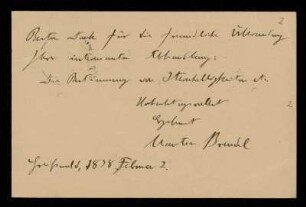 2
Besten Dank für die freundliche Übersendung
Ihrer interessanten Abhandlung:
Die Bestimmung von Sternhelligkeiten etc.
Hochachtungsvollst
Ergebenst
Martin Brendel
Greifswald, 1898 Februar 2.